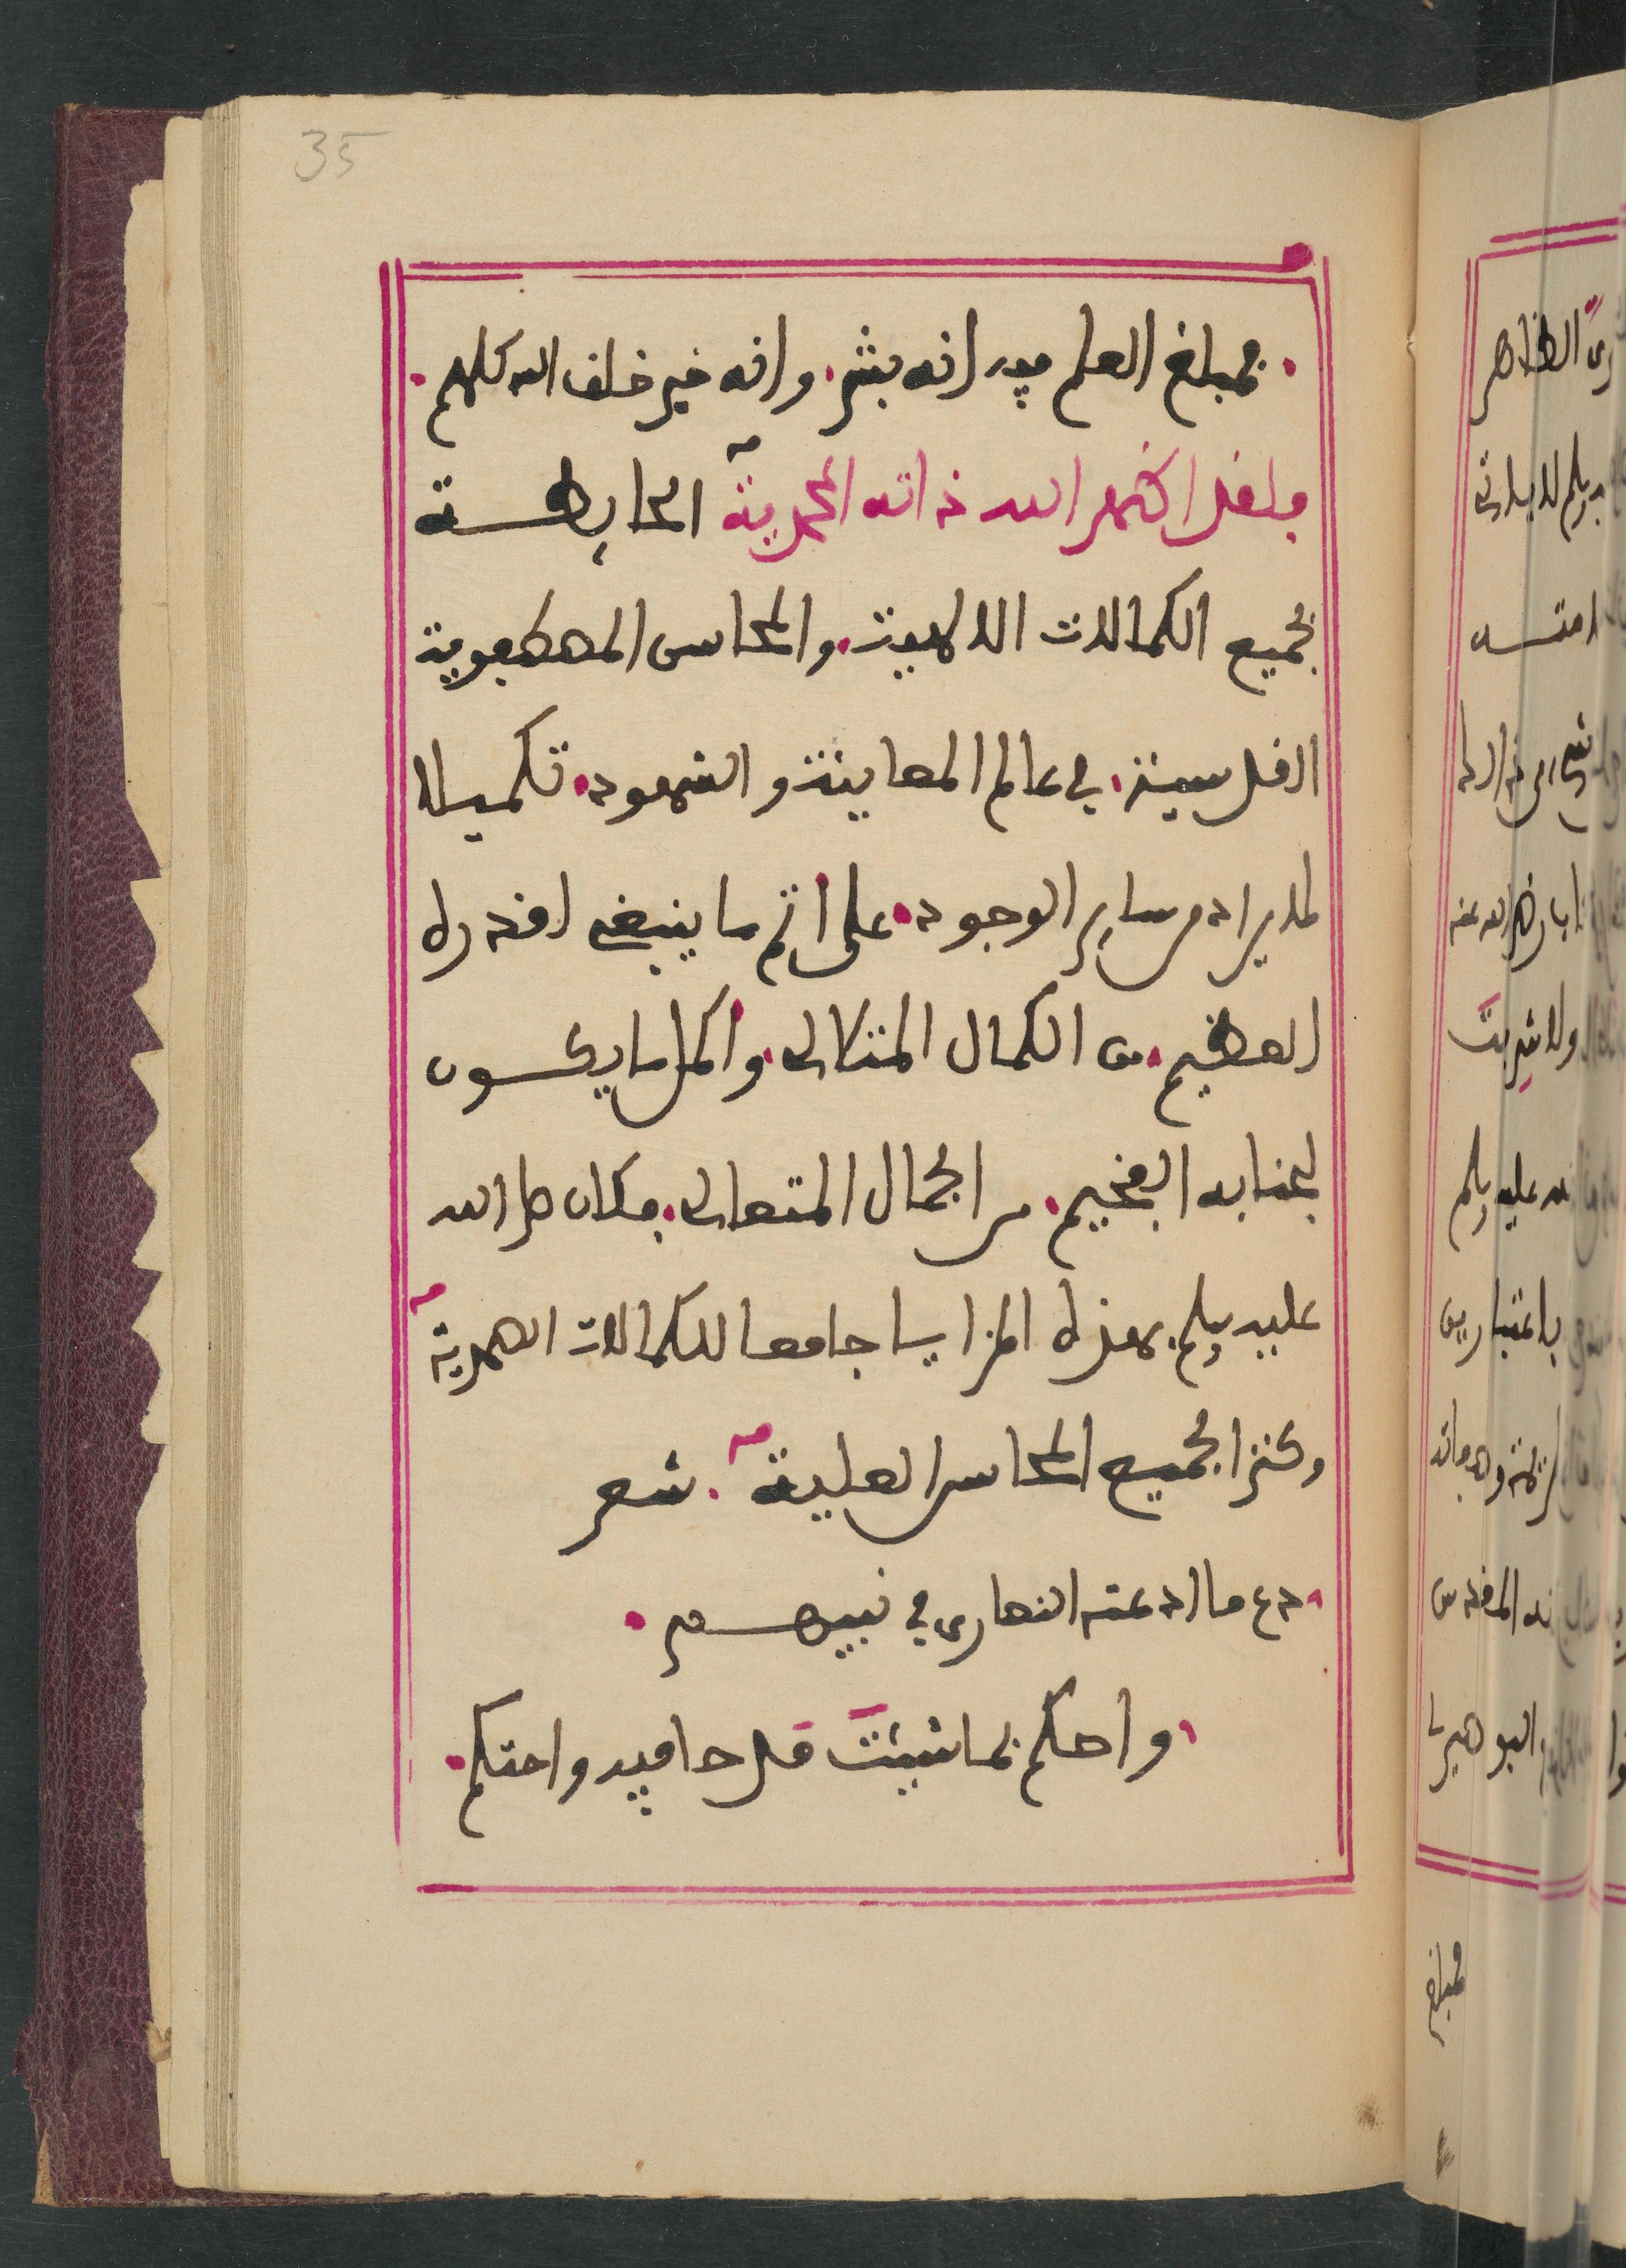 35
فمبلغ العلم فيه انه بشر. وانه خير خلف الله كلهم.
ولقد اظهر الله ذاته المحمدية الحايطة
بجميع الكمالات الالهية. والمحاسن المصطفوية
القدسية. في عالم المعاينة والشهود. تكميلا
لدايرة ساير الوجود. على اتم ما ينبغي لقدره
العظيم. من الكمال المتلالي. واكمل ما يكون
لجنابه الفخيم. من الجمال المتعالي. فكان صلى الله
عليه وسلم. بهذه المزايا جامعا للكمالات الصمدية
وكنزا لجميع المحاسن العلية. شعر
. دع ما ادعته النصارى في نبيهم.
. واحكم بما شيئتَ مدحا فيه واحتكم.
فمبلغ